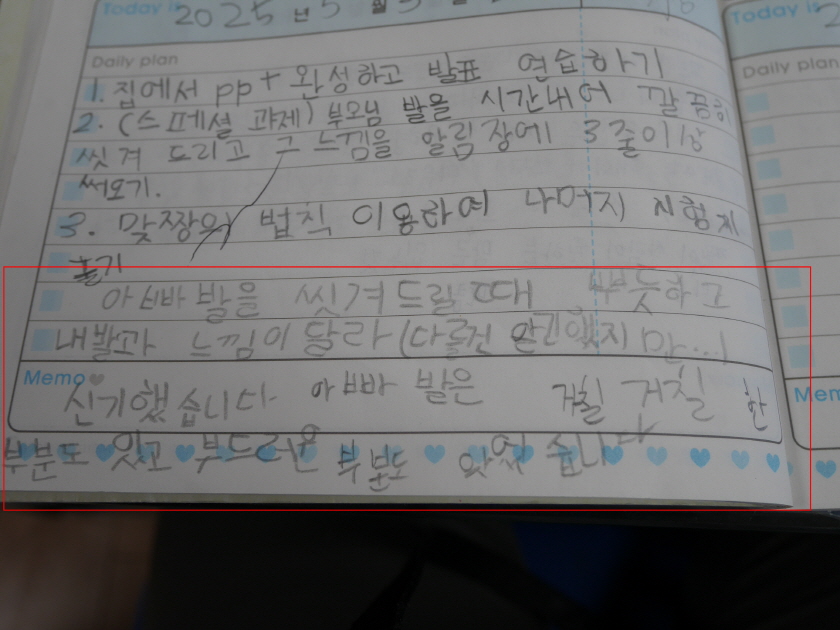 Today is
2025년 5월
Daily plan
1. 집에서 pp+ 완성하고 발표 연습하기
2. (스페셜 과제) 부모님 발을 시간내어 깔끔히
씻겨 드리고 그 느낌을 알림장에 3줄이상
써오기.
3. 맞짱의 법칙 이용하여 나머지 시험지
풀기
아빠발을 씻겨드릴 때 뿌듯하고
내발과 느낌이 달라(다를건 알긴했지만...)
Memo
신기했습니다 아빠 발은 거칠거칠한
부분도 있고 부드러운 부분도 있었습니다
Today is
Daily plan
Mem